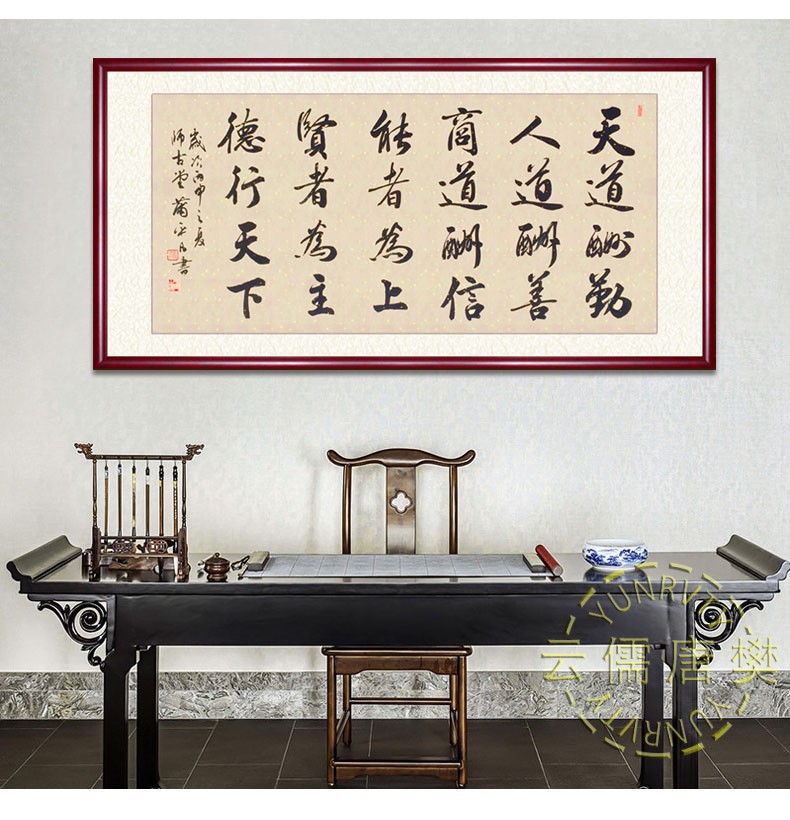 天道酬勤
人道酬善
商道酬信
能者為上
賢者為主
德行天下
歲次丙申之夏
师古堂 書
云儒唐樊